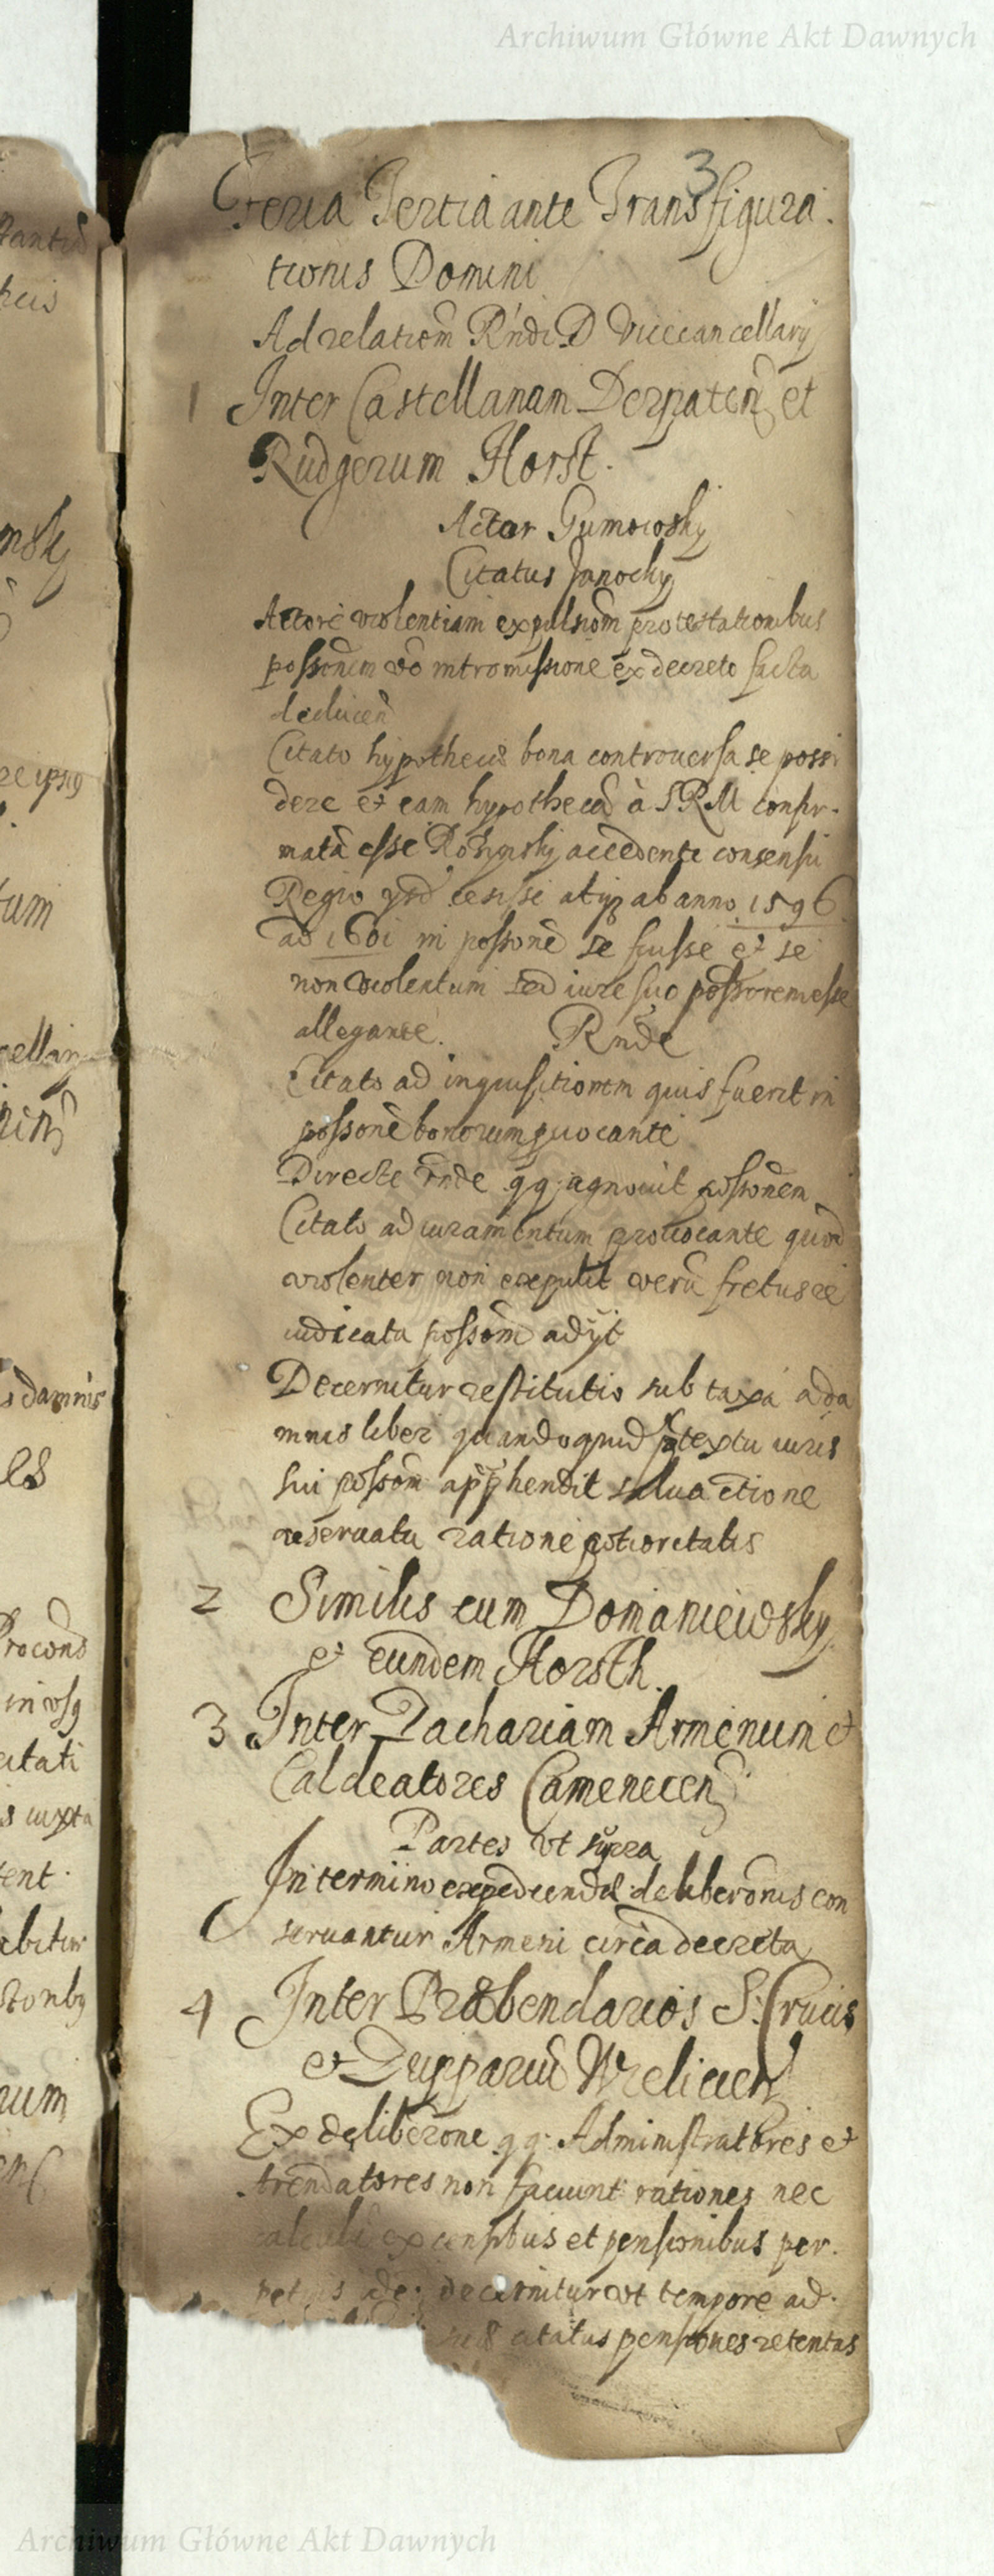 Archiwum Główne Akt Dawnych
3
Feria Tertia ante Transfigura.
tionis Domini
Ad relationem R'ndi D Vicecancellarij
1 Inter Castellanam Derpaten et
Rudgerum Horst.
Actor Gumowsky
Citatus Janocky
Actore violentiam expulsiom protestationibus
possonem vo intromissione ex decreto facta
deducen
Citato hypothecis bona controuersa se possi
dere et eam hypotheca à SRM confir-
matā esse accedente consensu
Regio cesisse atq ab anno 1596
ad 1601 in possone se fuisse et se
non violentum sed iure suo possorem esse
allegante. Rnde
Citato ad inquisitionem quis fuerit in
possonē bonorum puocante
Directe rnde qq agnouit possonem
Citato ad iuramentum prouocante quod
violenter non expulit verū fretus re
iudicata possom adijt
Decernitur restitutio sub taxa a da
mnis liber quandoquid ptextu iuris
sui possom apphendit salua actione
reseruata ratione potioritatis
2 Similis cum Domaniewsky
et eundem Horsth.
3 Inter Zachariam Armenum et
Caldeatores Camenecen
Partes vt supra
In termino expediendae deliberonis con
seruantur Armeni circa decreta
4 Inter Præbendarios S. Crucis
et Zupparium Wieliciен
Ex deliberone qq Administratores et
Arendatores non faciunt rationes nec
calculū ex censibus et pensionibus per-
petuis decernitur vt tempore ad
citatus pensiones retentas
tantū
nsky
re ipsiq
tum
cellary
s damnis
es
Procons
in vsq
citati
s iuxta
tent.
ebitur
rum
Archiwum Główne Akt Dawnych